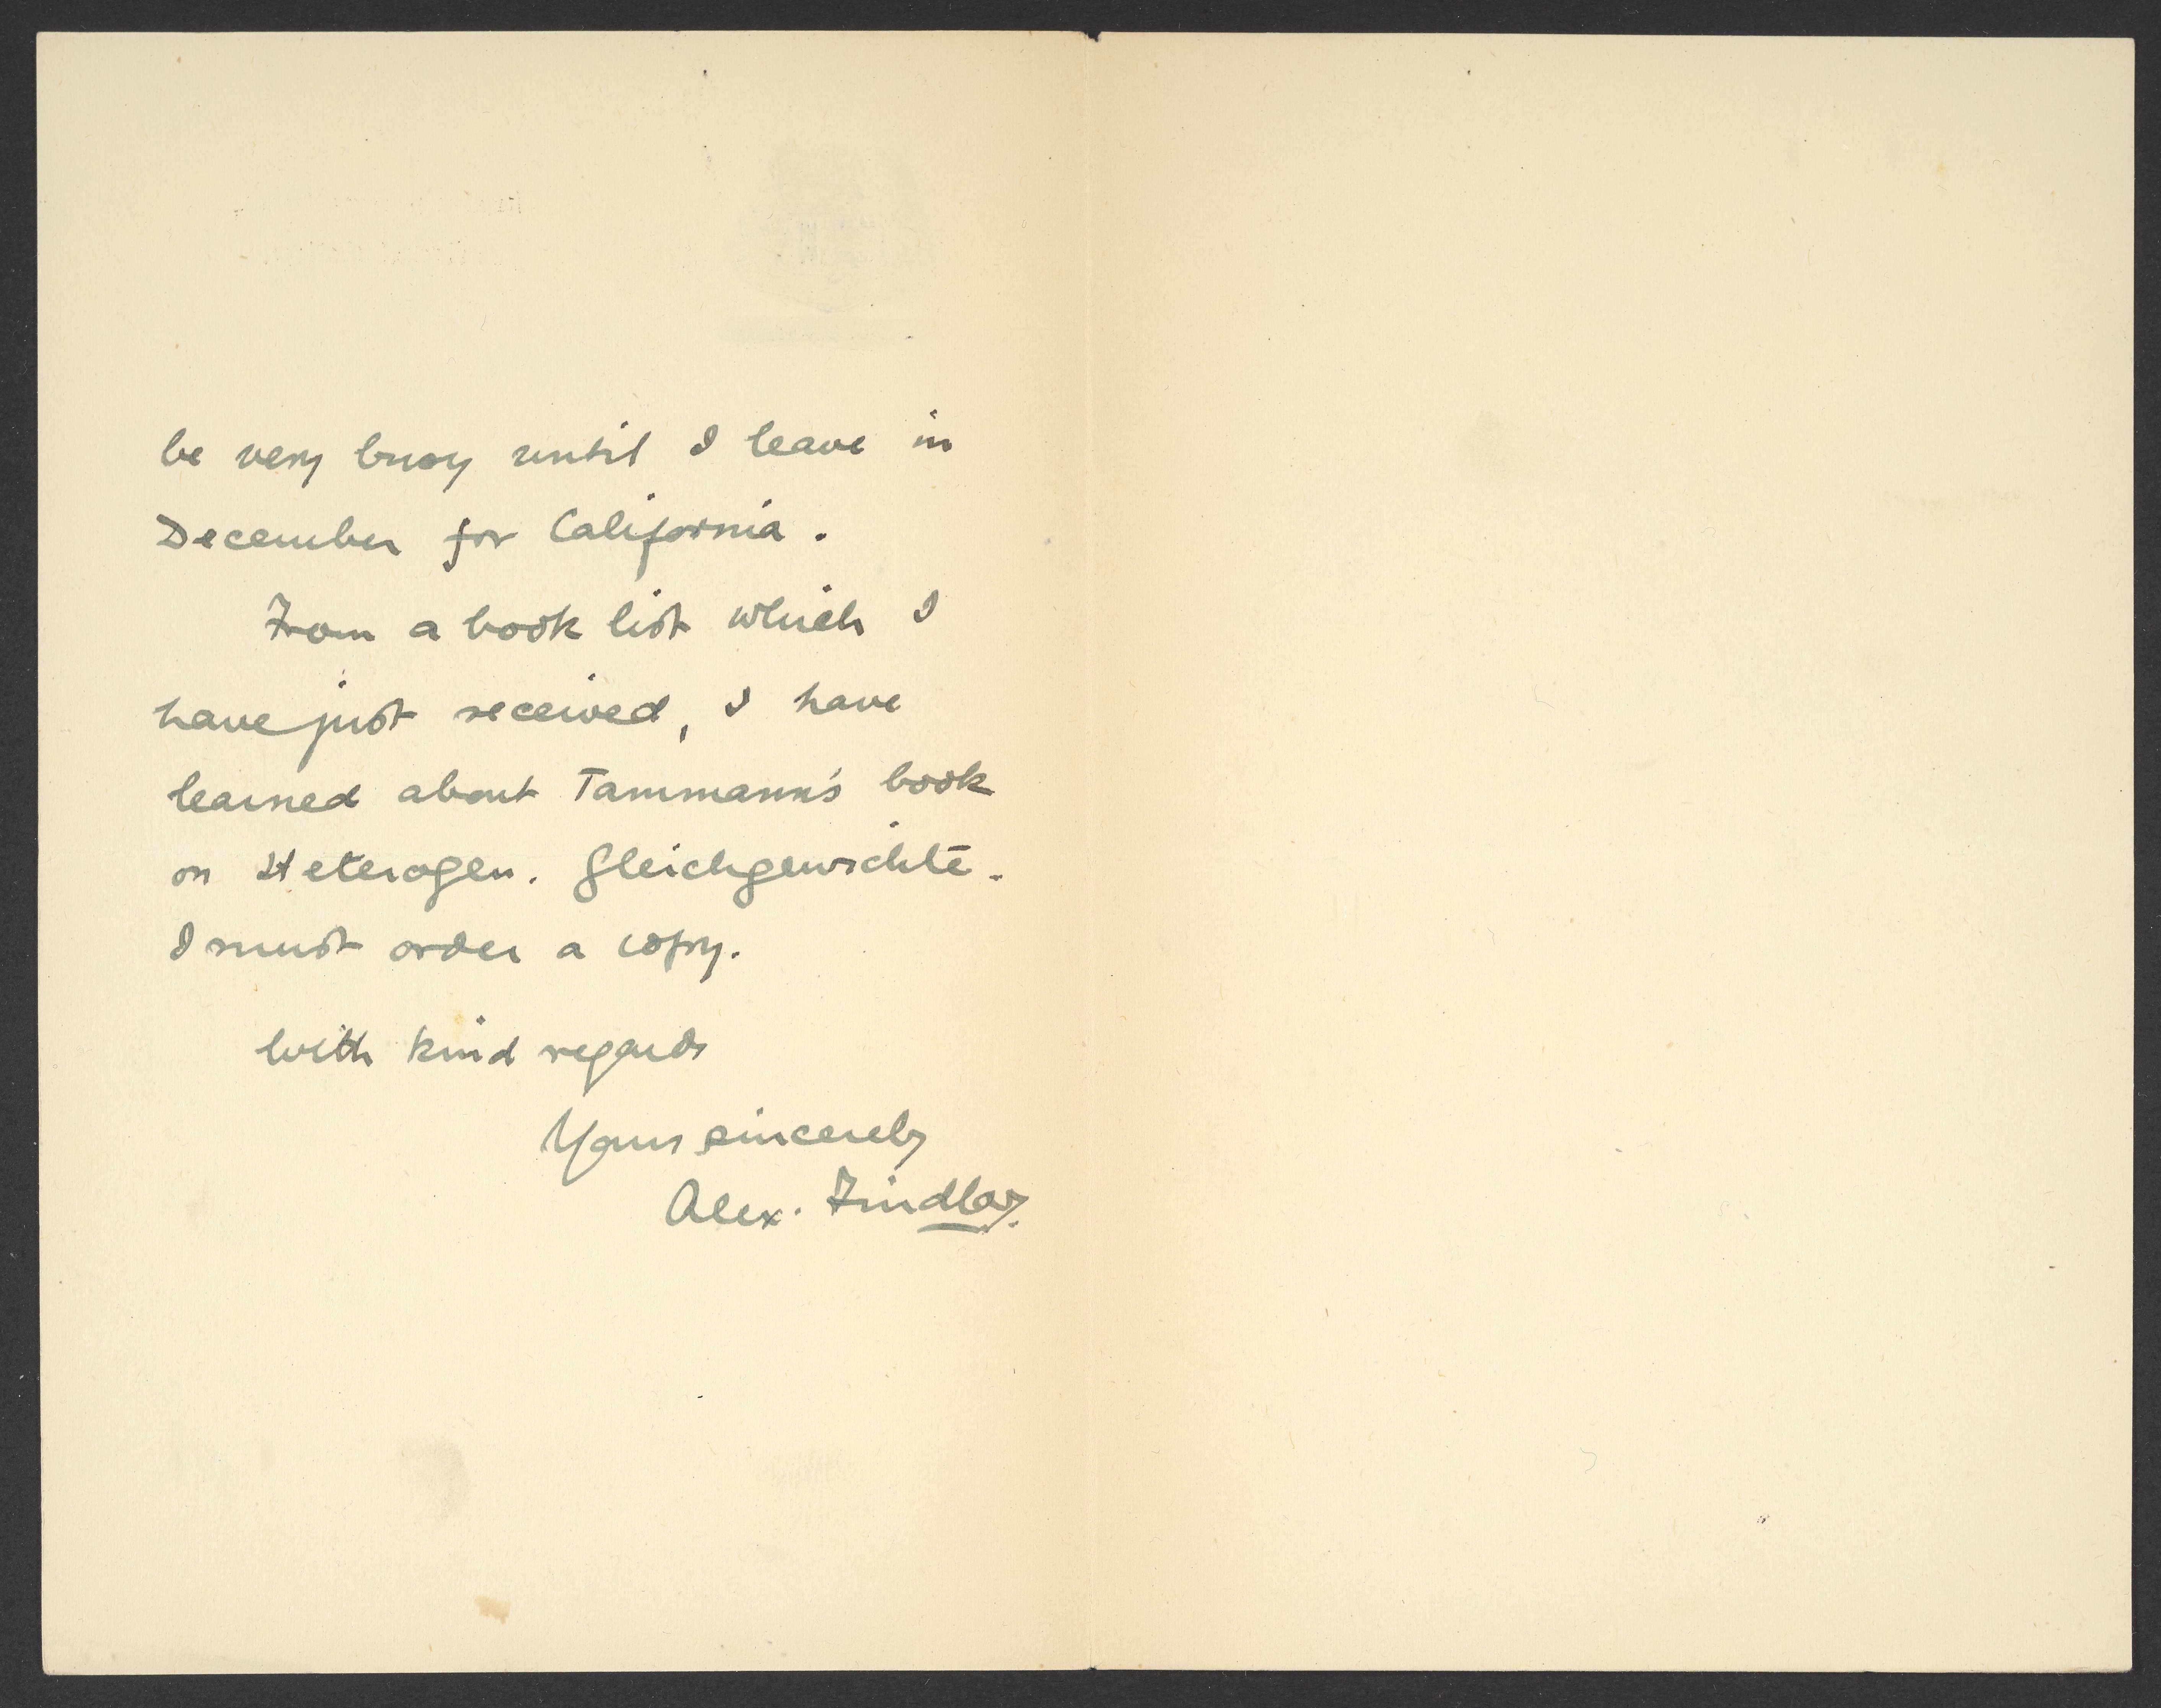 be very busy until I leave in
December for California.
From a book list which I
have just received, I have
learned about Tammann's book
on Heterogen. Gleichgewichte.
I must order a copy.
With kind regards
Yours sincerely
Alex. Findlay.